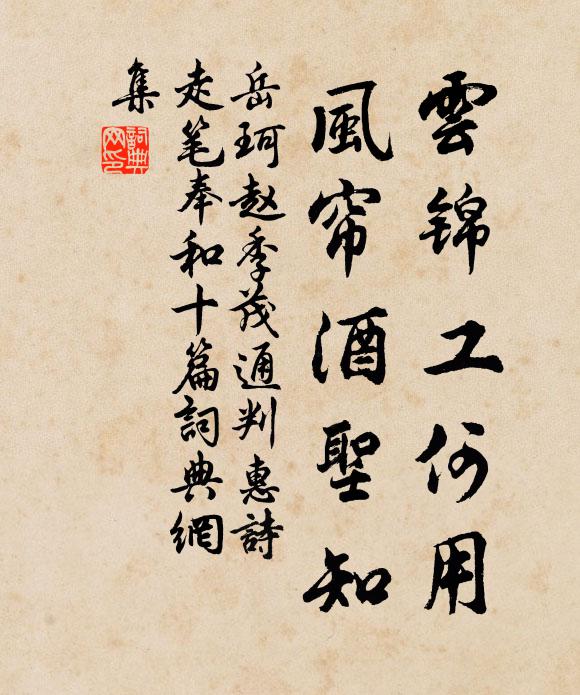 雲锦工何用
風帘酒聖知
岳珂赵季茂通判惠詩
走笔奉和十篇詞典網
集
詞典网印